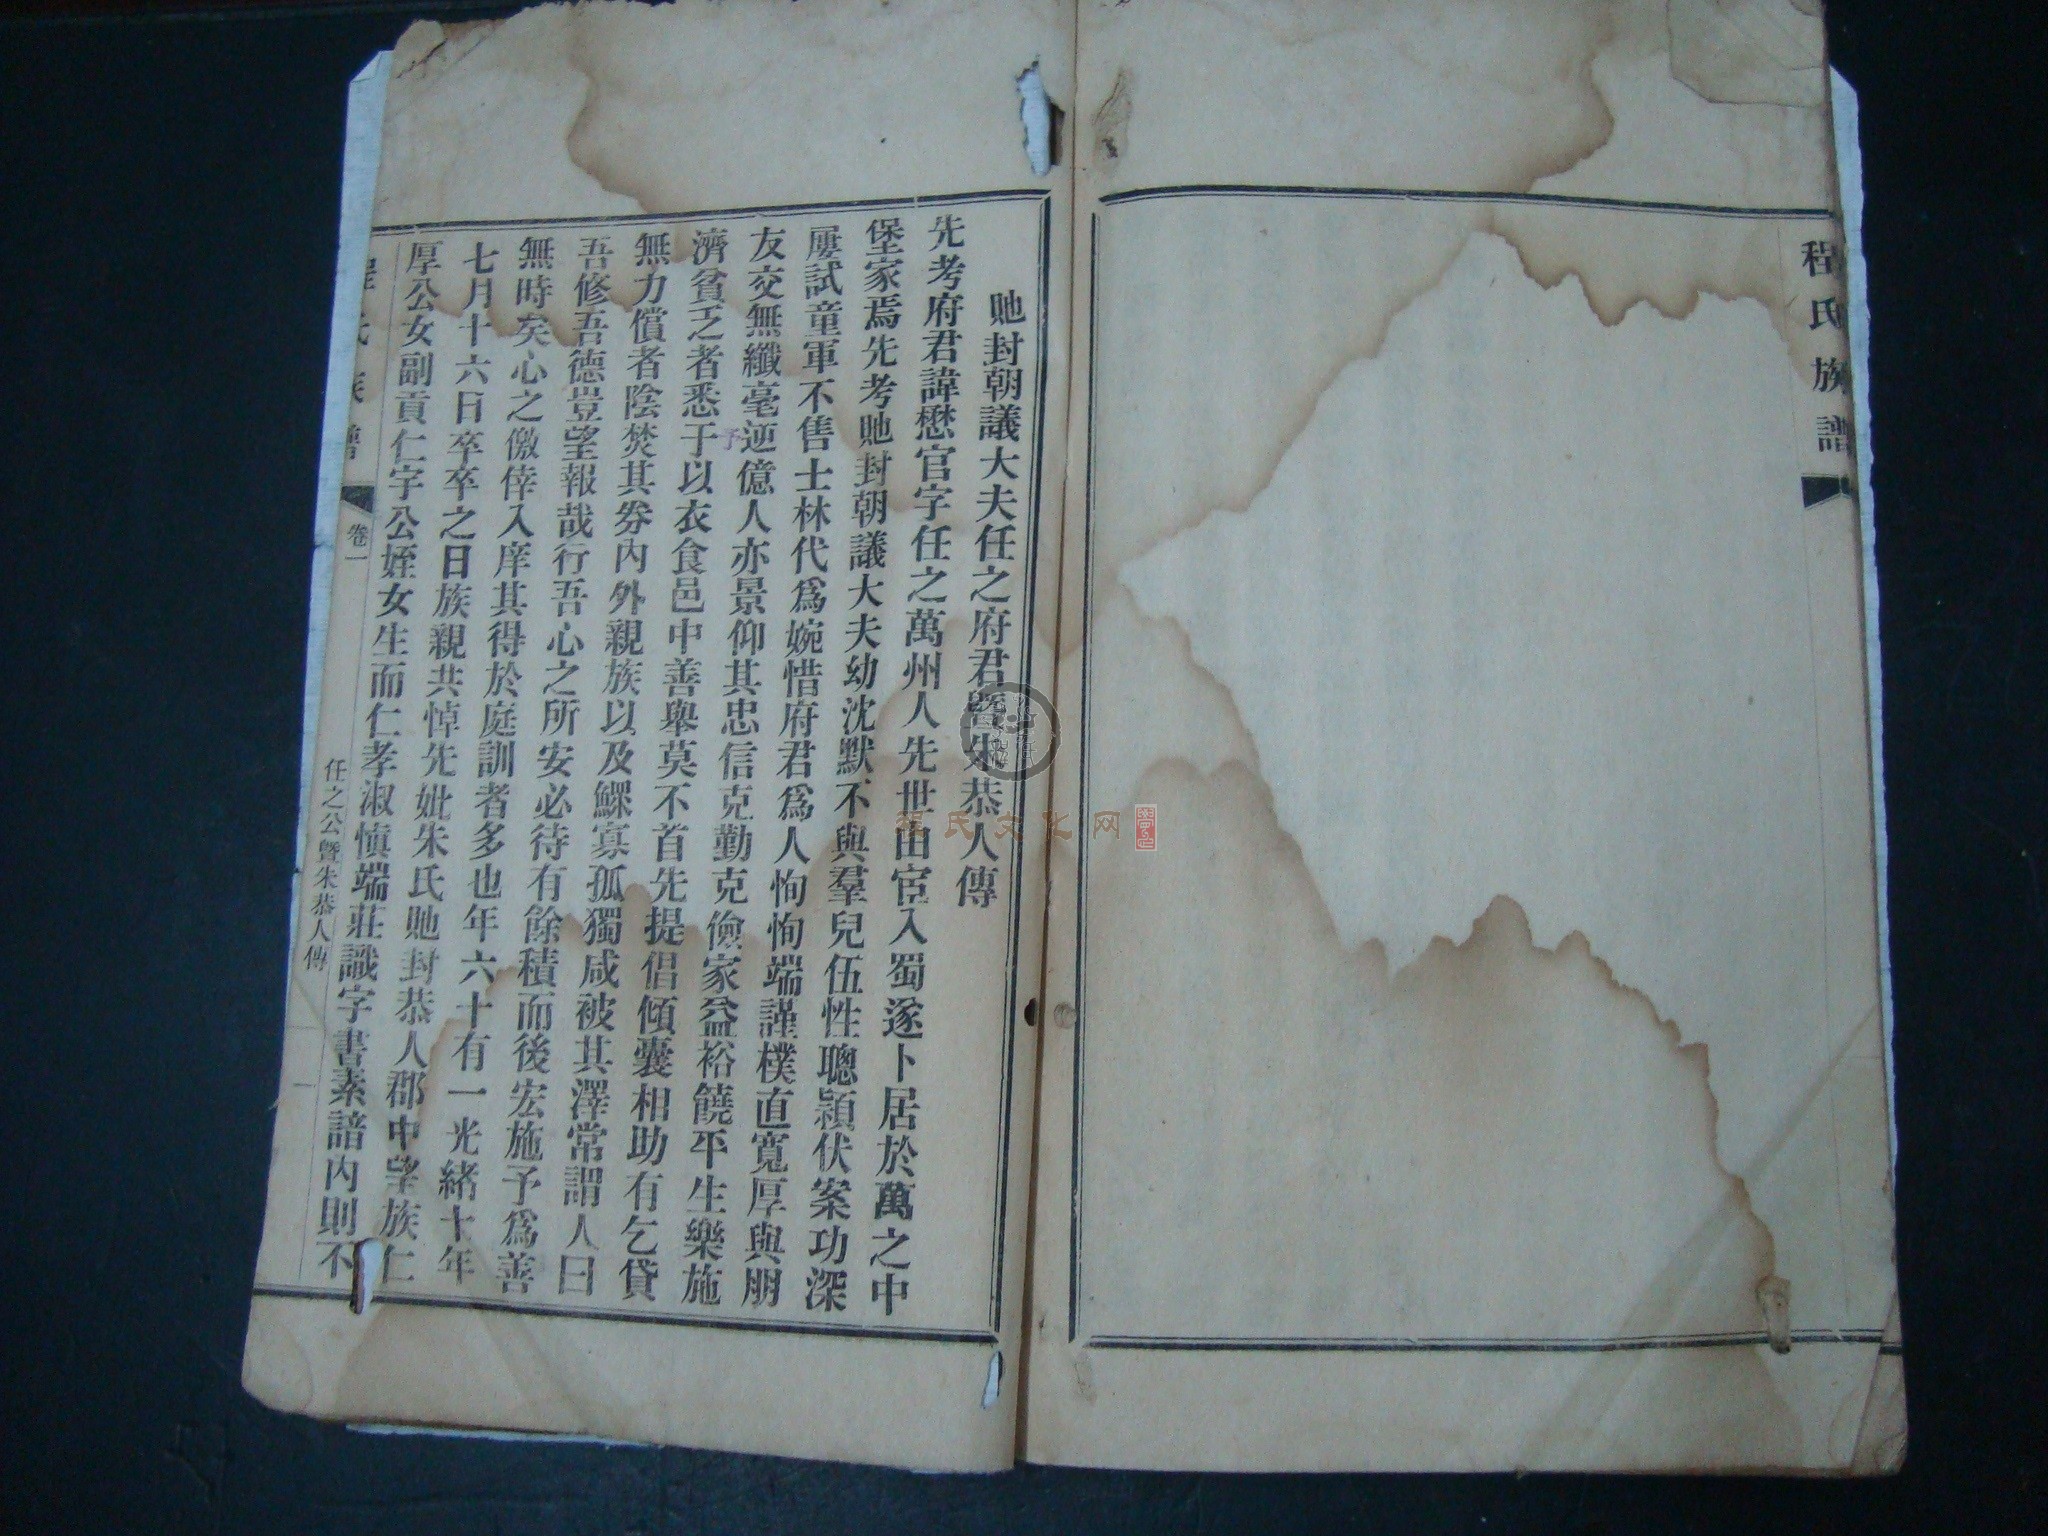 程氏族譜
貤封朝議大夫任之府君暨朱恭人傳
先考府君諱懋官字任之萬州人先世由宦入蜀遂卜居於萬之中
堡家焉先考貤封朝議大夫幼沈默不與羣兒伍性聰穎伏案功深
屢試童軍不售士林代爲婉惜府君爲人恂恂端謹樸直寬厚與朋
友交無纖毫逆億人亦景仰其忠信克勤克儉家益裕饒平生樂施
濟貧乏者悉于以衣食邑中善舉莫不首先提倡傾囊相助有乞貸
予
無力償者陰焚其券內外親族以及鰥寡孤獨咸被其澤常謂人曰
吾修吾德豈望報哉行吾心之所安必待有餘積而後宏施予爲善
無時矣心之儌倖入庠其得於庭訓者多也年六十有一光緒十年
七月十六日卒卒之日族親共悼先妣朱氏貤封恭人郡中望族仁
厚公女副貢仁宇公姪女生而仁孝淑愼端莊識字書素諳內則不
程氏族譜
卷一
任之公暨朱恭人傳
一
程氏文化网